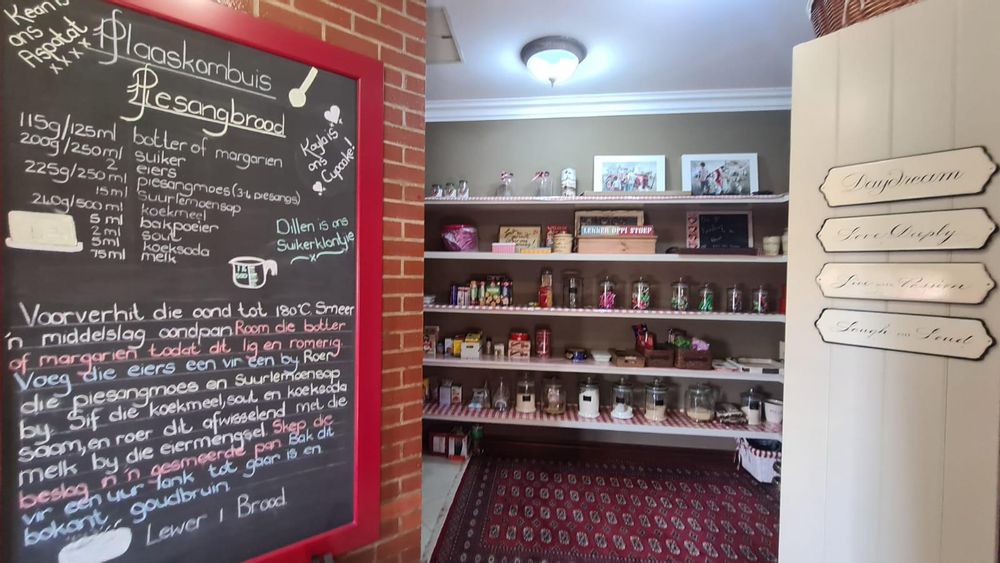 Kean is
ons
Aspatat
xxxx
Plaaskombuis
Piesangbrood
115g/125ml botter of margarien
200g/250ml suiker
2 eiers
225g/250ml piesangmoes (3-4 piesangs)
15ml suurlemoensap
240g/500ml koekmeel
5 ml bakpoeier
2 ml sout
5ml koeksoda
75ml melk
Kayla is
ons
Cupcake!
Dillen is ons
Suikerklontjie
Voorverhit die oond tot 180°C. Smeer
'n middelslag oondpan. Room die botter
of margarien todat dit lig en romerig.
Voeg die eiers een vir een by. Roer
die piesangmoes en suurlemoensap
by. Sif die koekmeel, sout en koeksoda
saam, en roer dit afwisselend met die
melk by die eiermengsel. Skep die
beslag n 'n gesmeerde pan. Bak dit
vir een uur lank tot gaar is en
bokant goudbruin.
Lewer 1 Brood
LEKKER OPPI STOEP
Daydream
Love Deeply
Live with Passion
Laugh out Loud